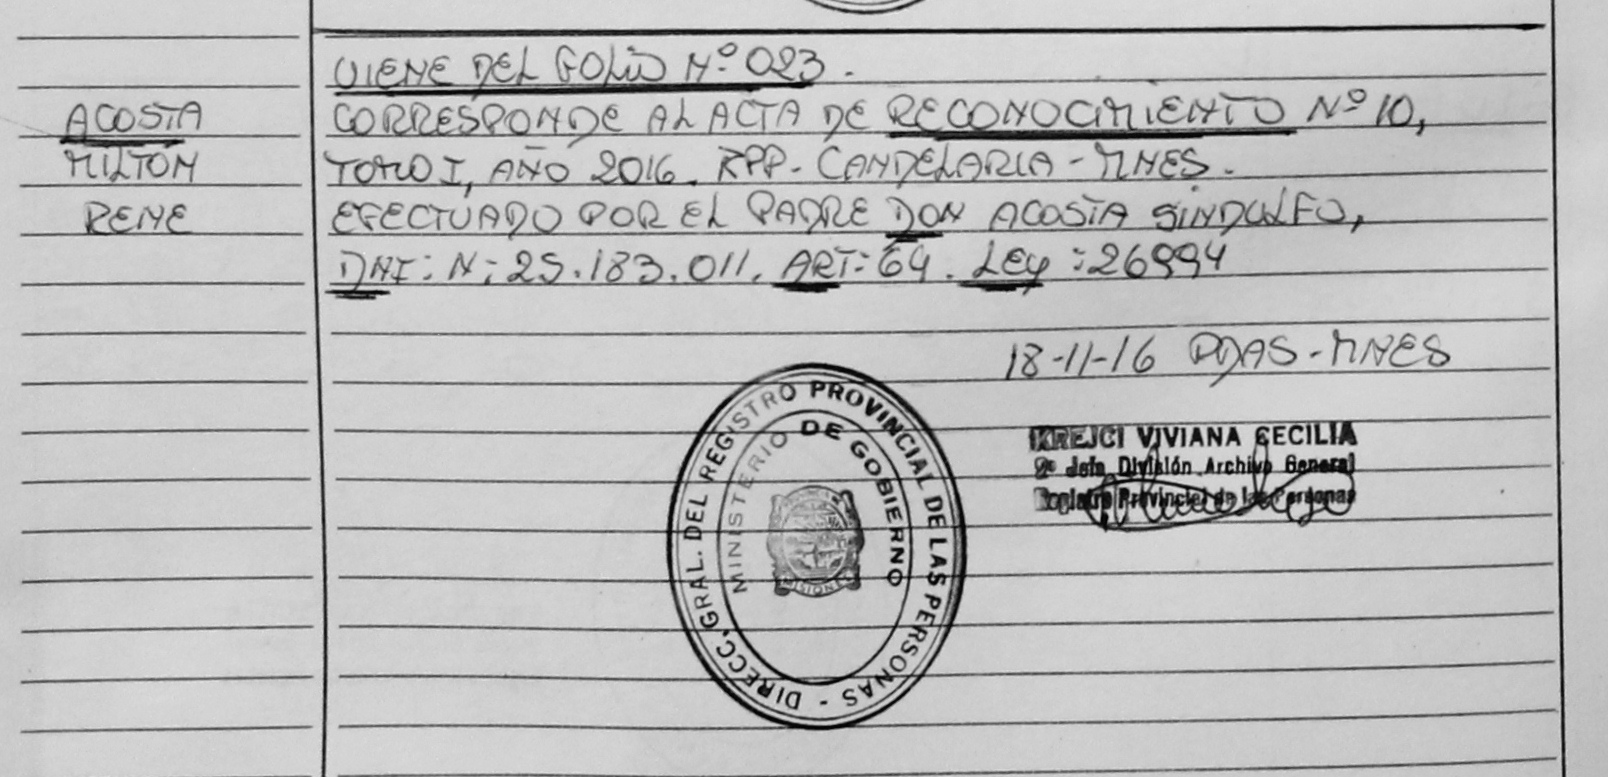 VIENE DEL FOLIO Nº 023.
ACOSTA
MILTON
RENE
CORRESPONDE AL ACTA DE RECONOCIMIENTO Nº 10,
TOMO I, AÑO 2016. RPP- CANDELARIA - MNES.
EFECTUADO POR EL PADRE DON ACOSTA SINDULFO,
DNI: N: 25.183.011. ART: 64. LEY: 26994
18-11-16 PDAS-MNES
DIRECC. GRAL. DEL REGISTRO PROVINCIAL DE LAS PERSONAS -
MINISTERIO DE GOBIERNO
MISIONES
KREJCI VIVIANA CECILIA
2º Jefe División Archivo General
Registro Provincial de las Personas